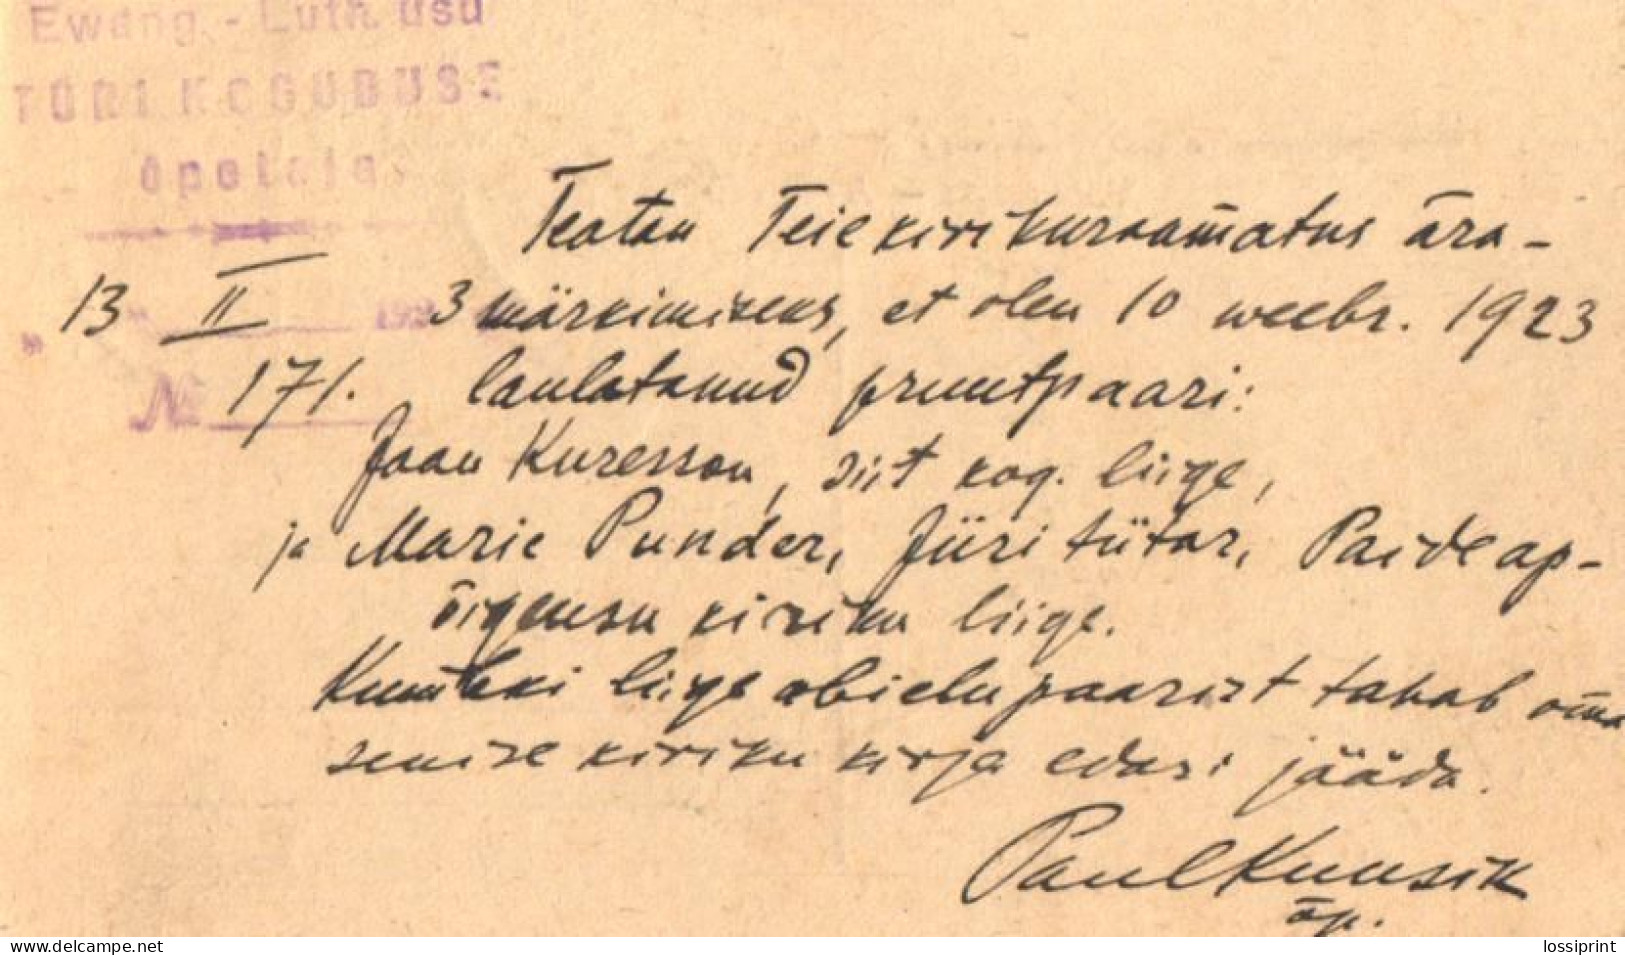 Ewang.-Luth. usu
TÜRI KOGUDUSE
õpetaja.
Teatan Teie kirikuraamatus ära-
13 II 1923 märkimiseks, et olen 10 weebr. 1923
№ 171. laulatanud pruutpaari:
Jaan Kuresson, siit kog. liige,
ja Marie Punder, Jüri tütar, Paide ap-
õigeusu kiriku liige.
Kumbki liige abielupaarist tahab oma
senise kiriku kirja edasi jääda.
Paul Kuusik
õp.
www.delcampe.net
lossiprint